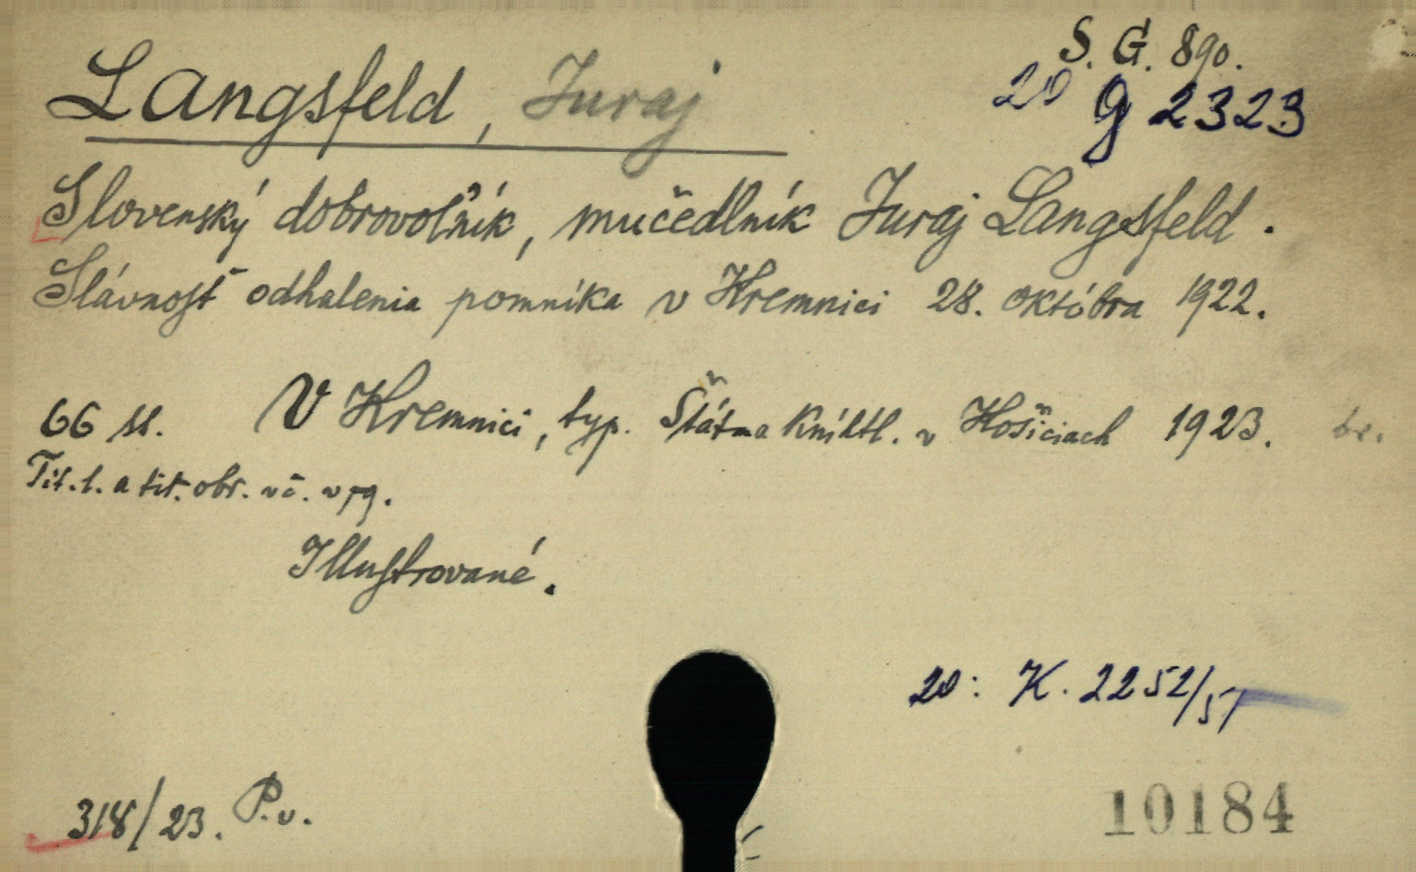 S. G. 890.
20 g 2323
Langsfeld, Juraj
Slovenský dobrovoľník, mučedlník Juraj Langsfeld.
Slávnosť odhalenia pomníka v Kremnici 28. októbra 1922.
66 ss. V Kremnici, typ. Štátna kníhtl. v Košiciach 1923. br.
Tit. l. a tit. obr. vč. v pg.
Illustrované.
20: K. 2252/51
318/23. P.v.
10184